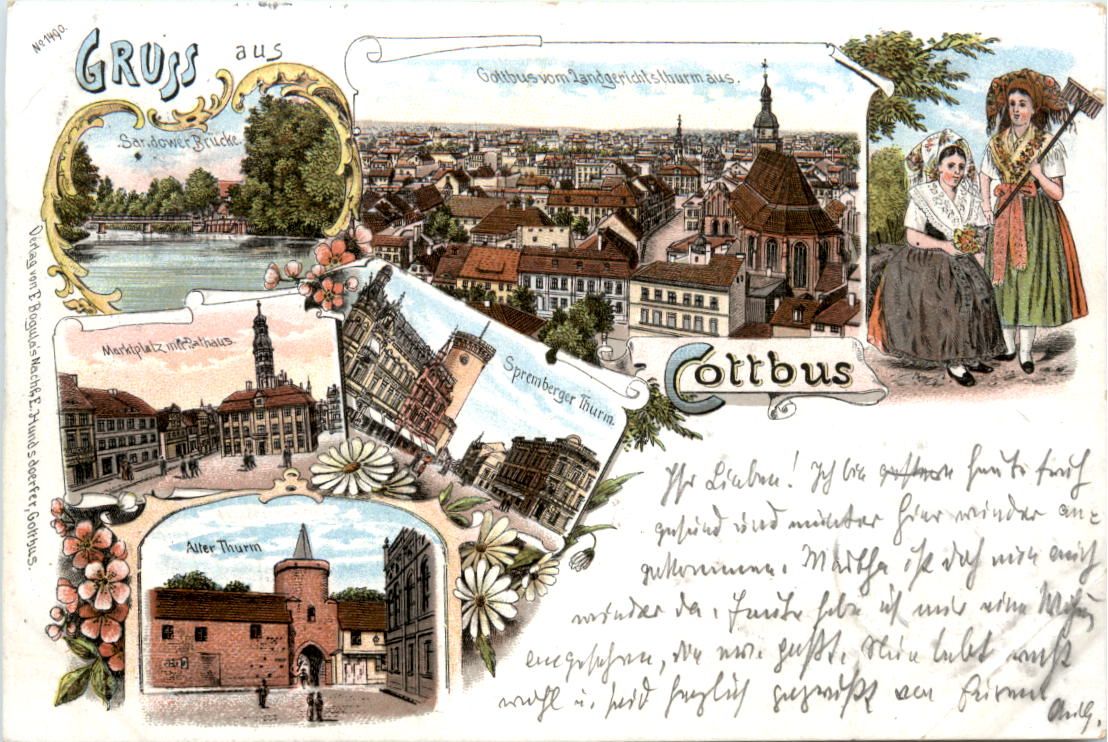 No 1490.
GRUSS aus
Sandower Brücke.
Cottbus vom Landgerichtsthurm aus.
Marktplatz mit Rathaus.
Spremberger Thurm.
Cottbus
Alter Thurm
Verlag von E. Bogula's Nachf. E. Hundsdoerfer, Cottbus.
Ihr Lieben! Ich bin gestern heute früh
gesund und munter hier wieder an-
gekommen. Martha ist doch nun auch
wieder da. Heute habe ich mir eine
angesehen, die mir paßt. Nun lebt recht
wohl u. seid herzlich gegrüßt von Eurem